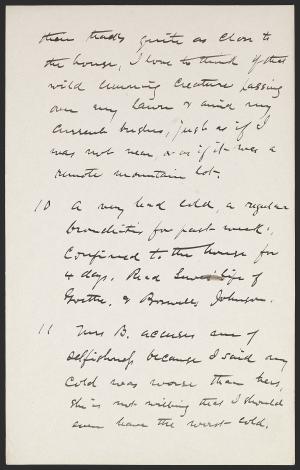 their tracks quite as close to
the house. I love to think of that
wild cunning creature passing
over my lawn & amid my
currant bushes, just as if I
was not near, or as if it was a
remote mountain lot.
10 A very bad cold, a regular
bronchitis for past week.
Confined to the house for
4 days. Read Lewes' life of
Goethe, & Boswells Johnson.
11 Mrs B. accuses me of
selfishness because I said my
cold was worse than hers,
she is not willing that I should
even have the worst cold.